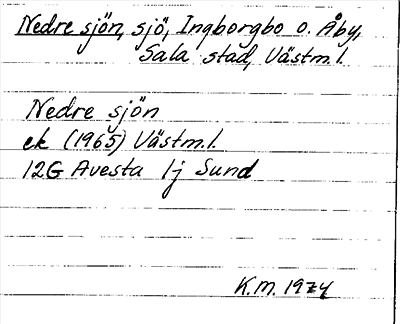 Nedre sjön, sjö, Ingborgbo o. Åby,
Sala stad, Västm. l.
Nedre sjön
ek (1965) Västm.l.
12G Avesta 1j Sund
K.M. 1974